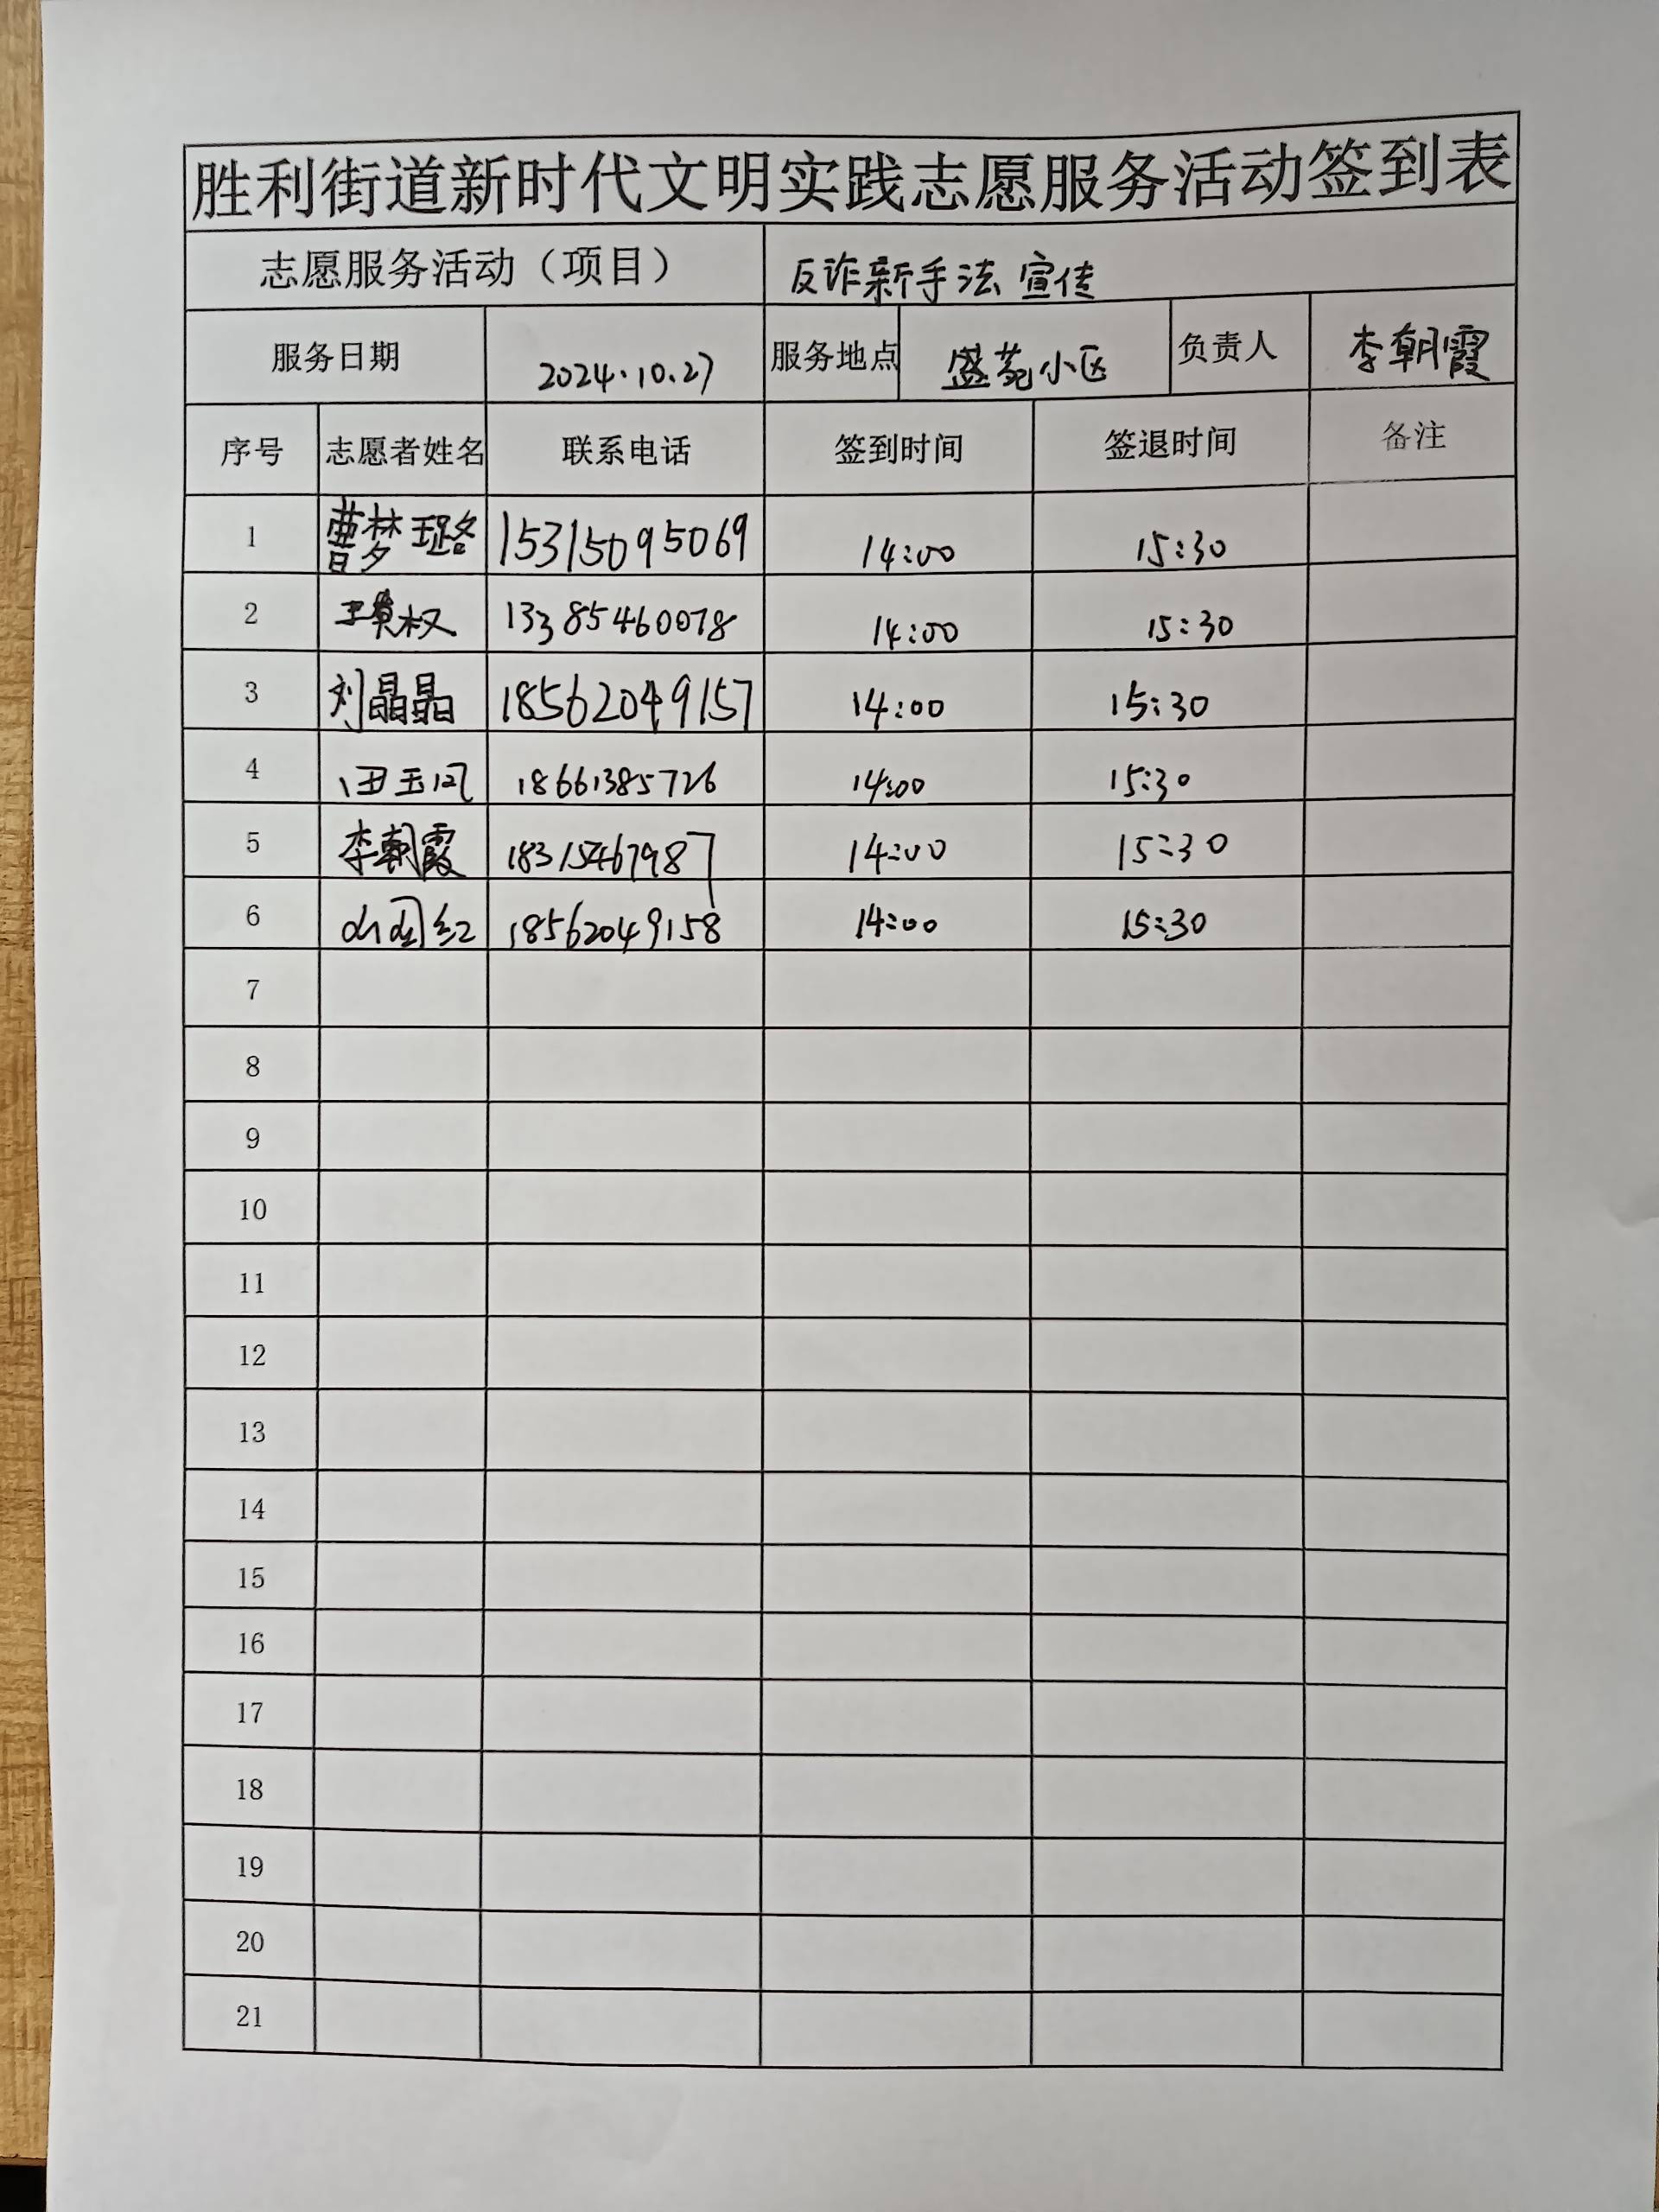 胜利街道新时代文明实践志愿服务活动签到表
志愿服务活动（项目） 反诈新手法宣传
服务日期 2024.10.27 服务地点 盛苑小区 负责人 李朝霞
序号 志愿者姓名 联系电话 签到时间 签退时间 备注
1 曹梦璐 15315095069 14:00 15:30
2 13385460078 14:00 15:30
3 刘晶晶 18562049157 14:00 15:30
4 18661385726 14:00 15:30
5 李朝霞 18315467987 14:00 15:30
6 18562049158 14:00 15:30
7
8
9
10
11
12
13
14
15
16
17
18
19
20
21